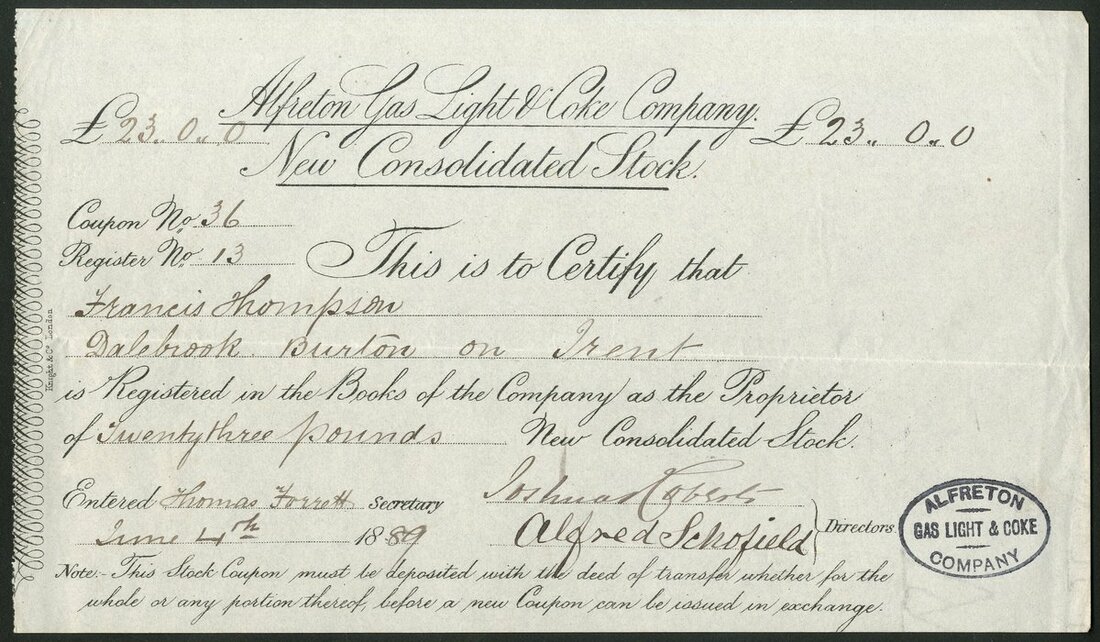 Alfreton Gas Light & Coke Company.
£ 23 „ 0 „ 0
£ 23 „ 0 „ 0
New Consolidated Stock.
Coupon No. 36
Register No. 13
This is to Certify that
Francis Thompson
Dalebrook Burton on Trent
is Registered in the Books of the Company as the Proprietor
of Twenty three pounds New Consolidated Stock.
Entered Thomas Secretary
June 4th 1889
Joshua Roberts
Alfred Schofield
Directors
Note:- This Stock Coupon must be deposited with the deed of transfer whether for the
whole or any portion thereof, before a new Coupon can be issued in exchange.
ALFRETON
GAS LIGHT & COKE
COMPANY
Knight & Co. London